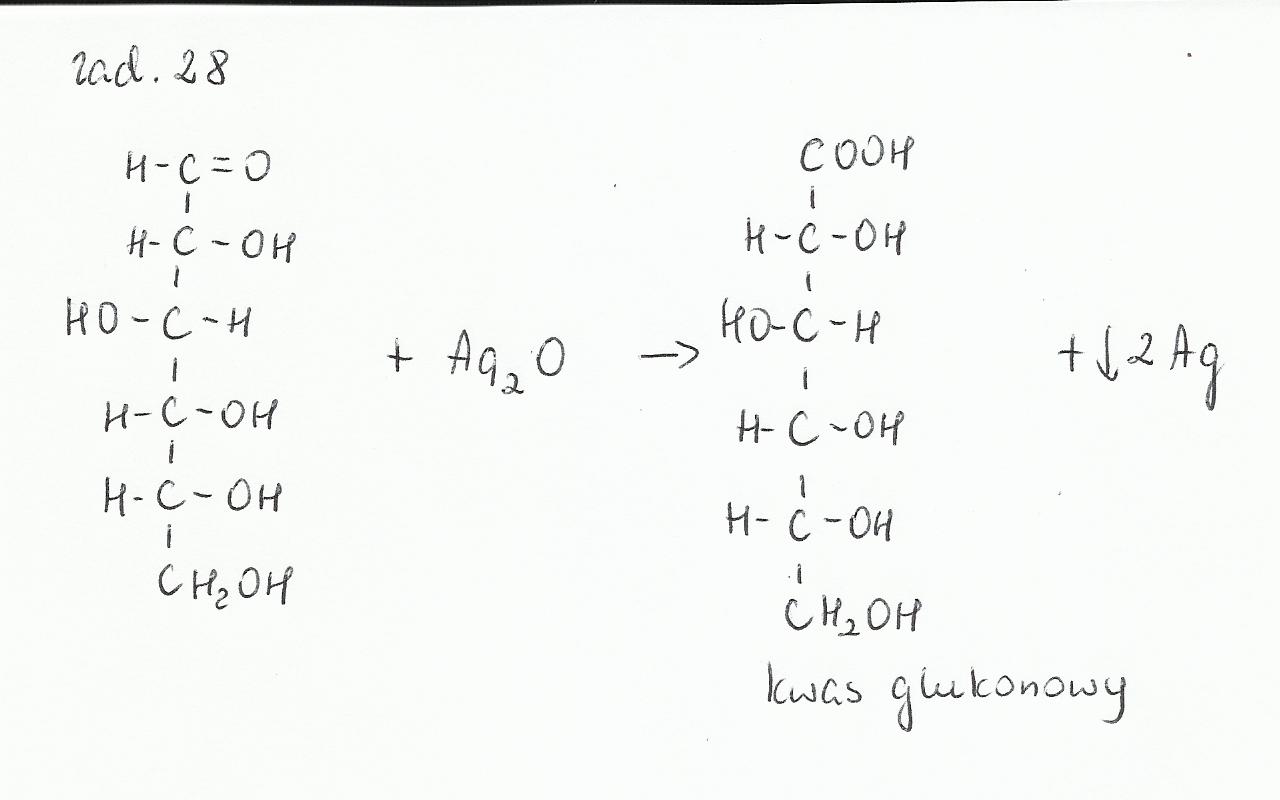 zad. 28
H-C=O
H-C-OH
HO-C-H
H-C-OH
H-C-OH
CH₂OH
+ Ag₂O →
COOH
H-C-OH
HO-C-H
H-C-OH
H-C-OH
CH₂OH
+↓2Ag
kwas glukonowy